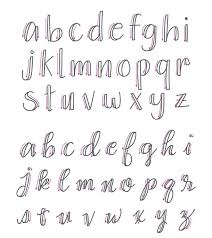 a b c d e f g h i
j k l m n o p q r
s t u v w x y z
a b c d e f g h i
j k l m n o p q r
s t u v w x y z